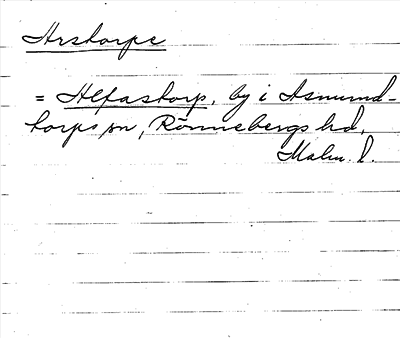 Arstorpe
= Alfastorp, by i Asmund-
torps sn, Rönnebergs hd,
Malm. l.